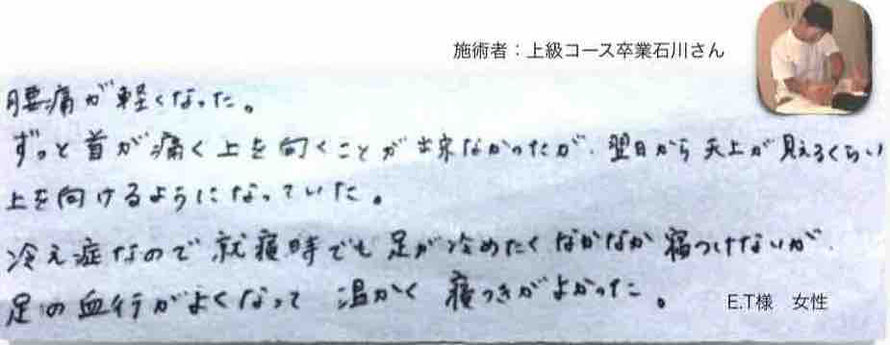 施術者：上級コース卒業石川さん
腰痛が軽くなった。
ずっと首が痛く上を向くことが出来なかったが、翌日から天上が見えるくらい
上を向けるようになっていた。
冷え症なので就寝時でも足が冷めたくなかなか寝つけないが、
足の血行がよくなって 温かく 寝つきがよかった。
E.T様 女性